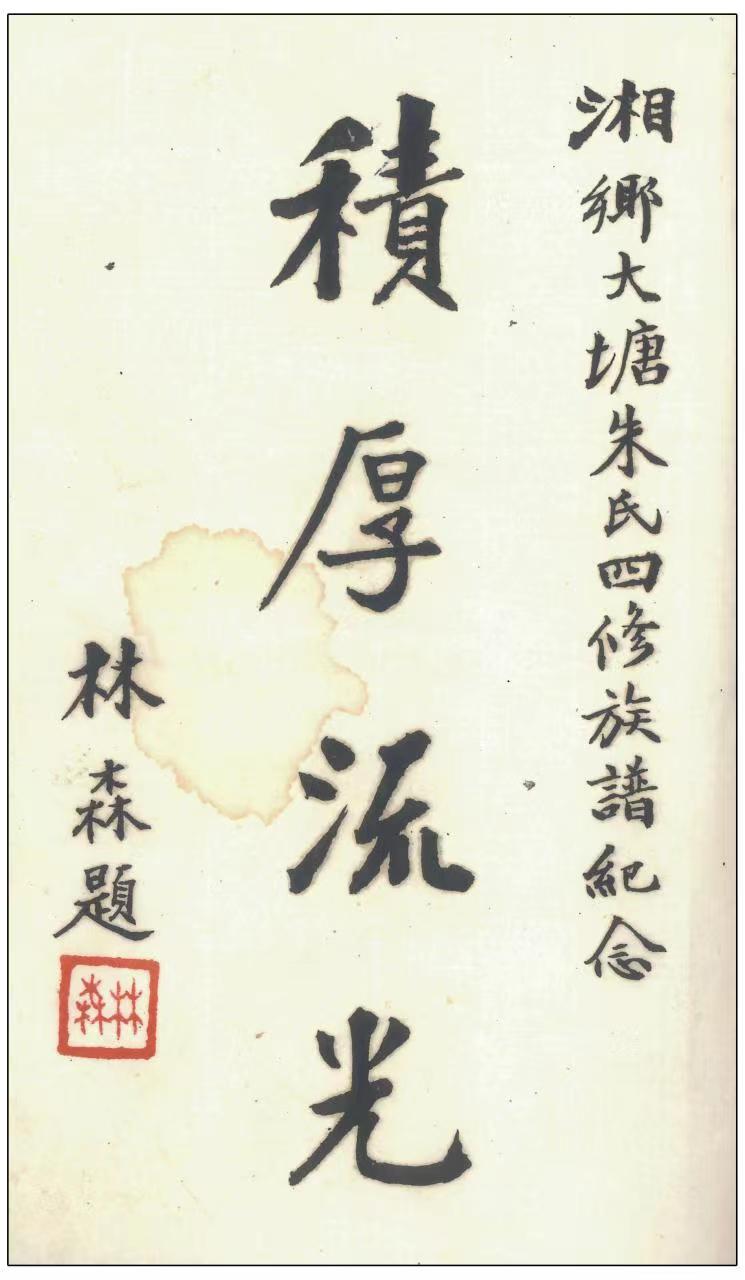 湘鄉大塘朱氏四修族譜紀念
積厚流光
林森題
林森